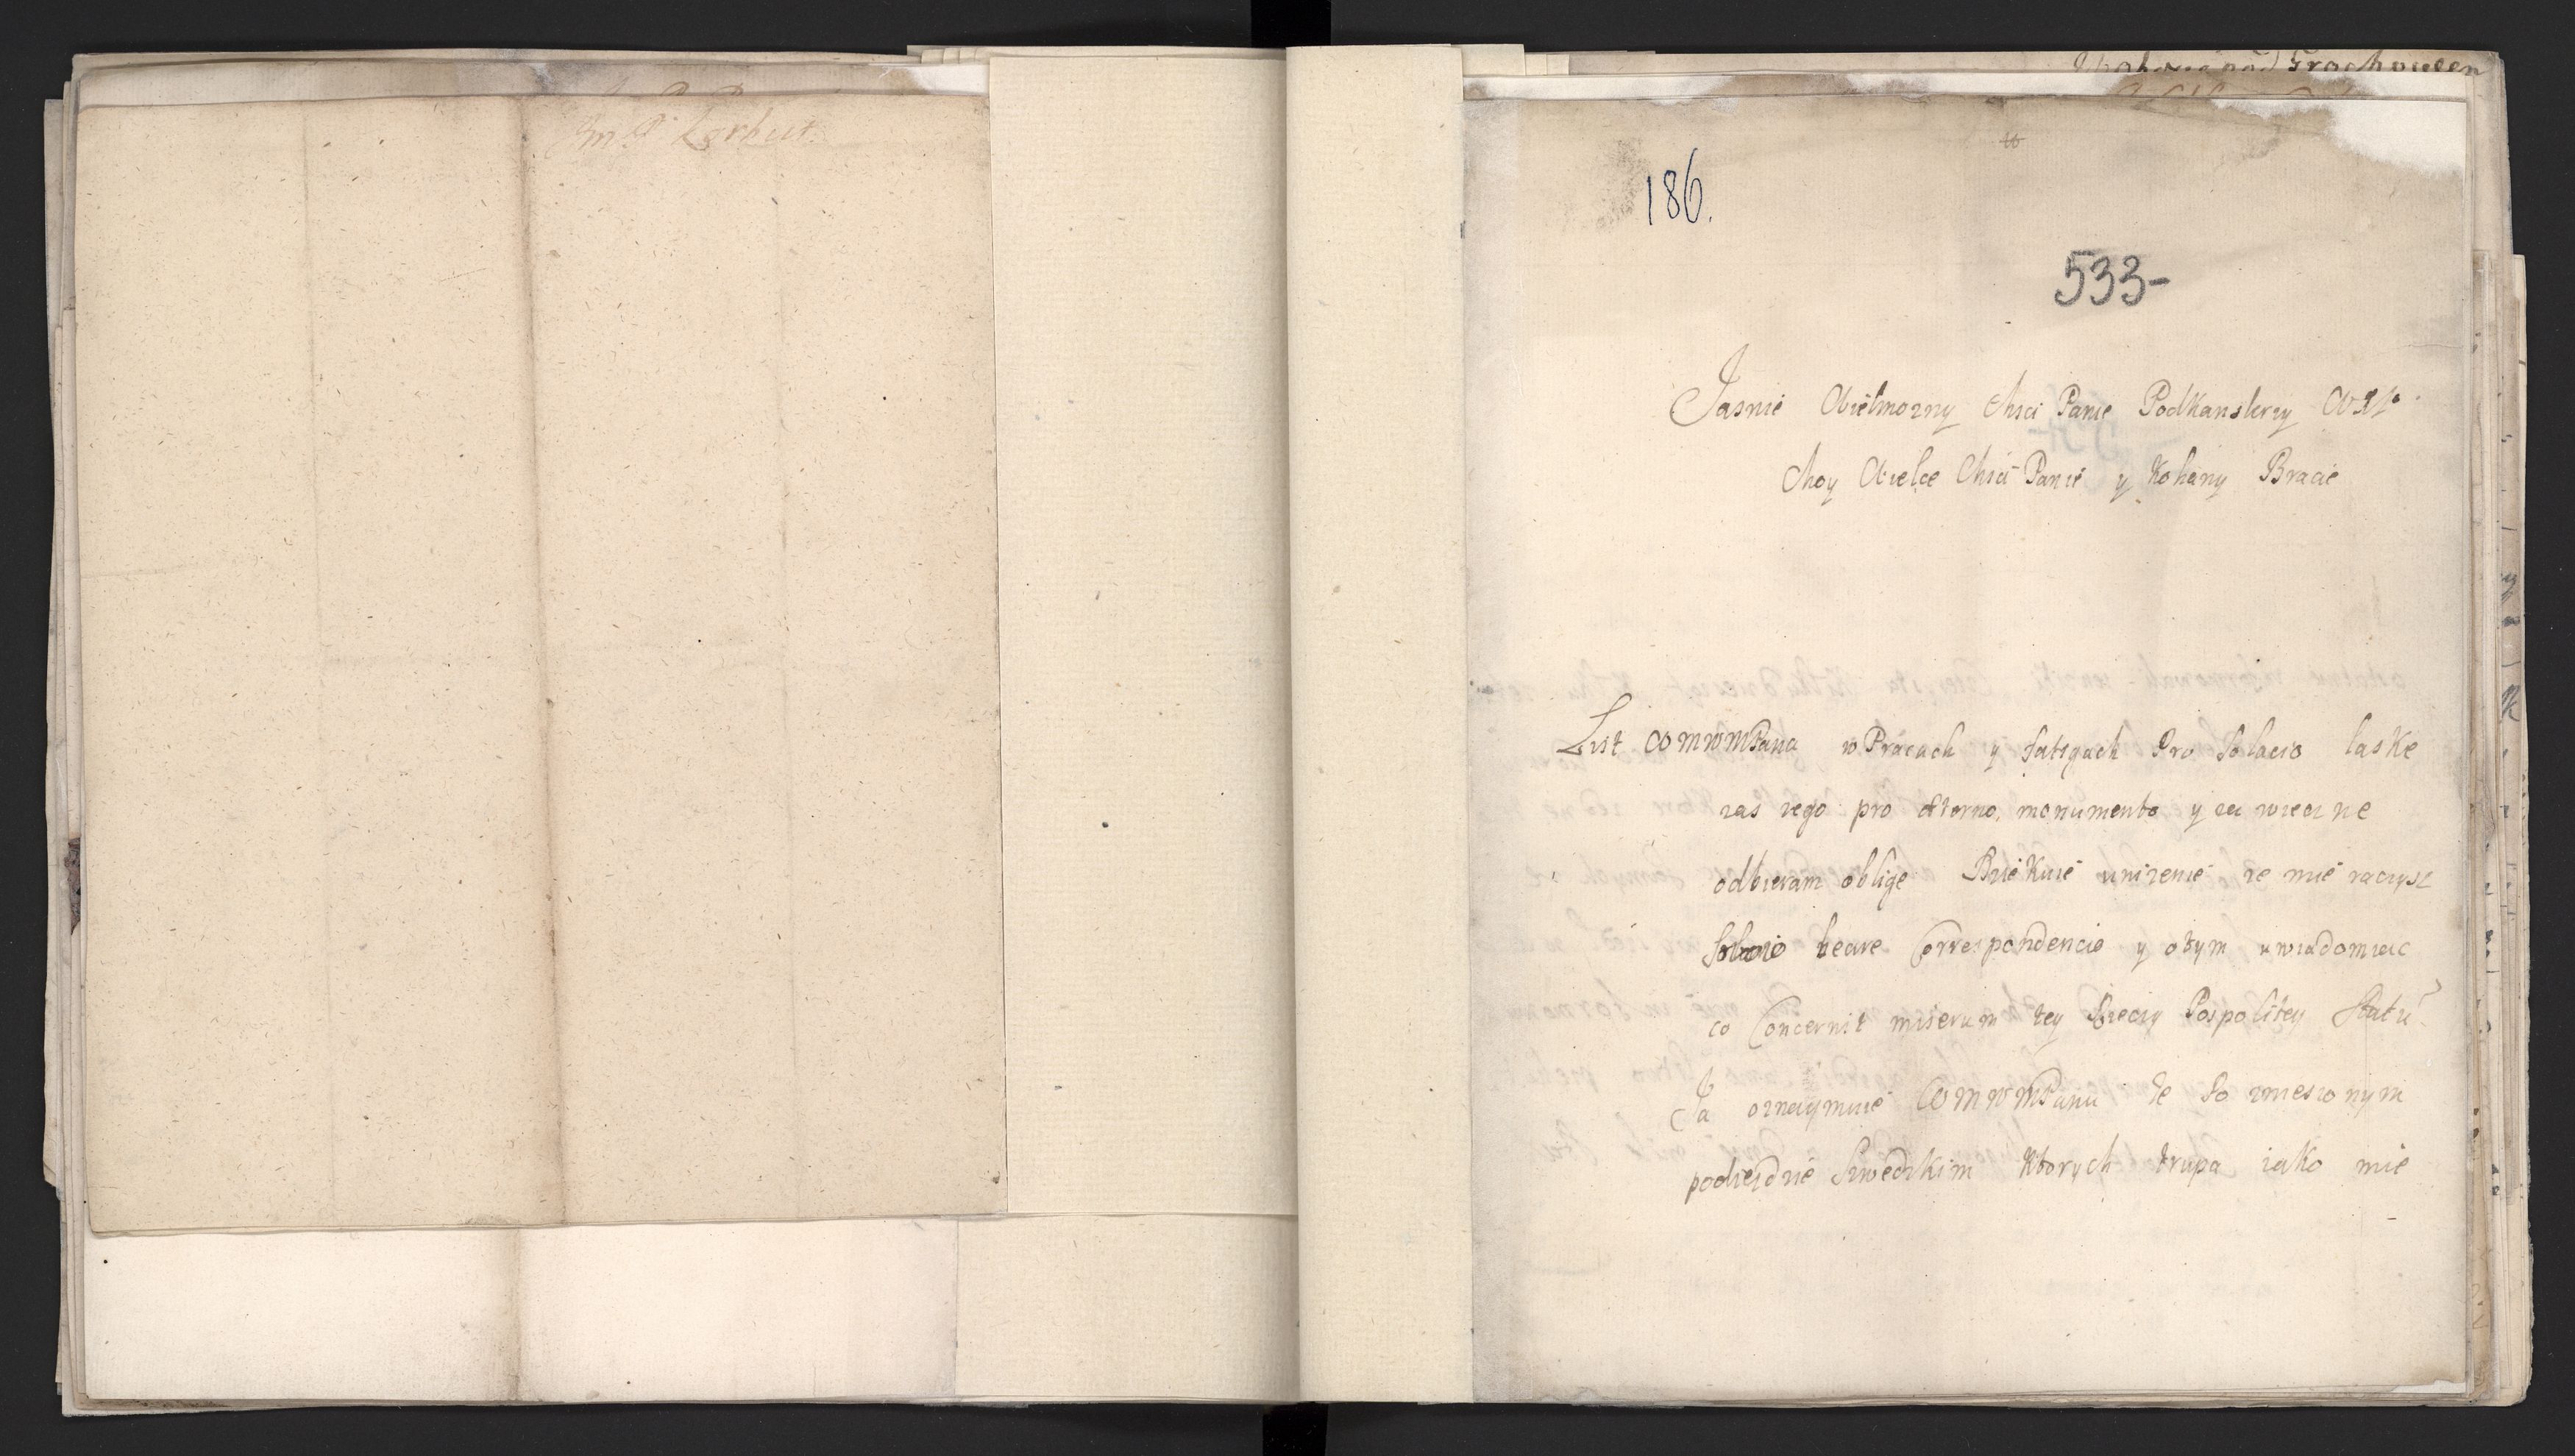 Jm P. Korbut
186.
533-
Jasnie Wielmozny Msci Panie Podkanslerzy WXL
Moy Wielce Msci Panie y Kohany Bracie
List WMMMPana w Pracach y fatigach Pro Solacio laske
zas iego pro æterno monumento y za wieczne
odbieram oblige Dziekuie unizenie ze mie raczysz
swoie Correspondencie y otym uwiadomiac
co Concernit miserum tey Rzeczy Pospolitey Statū
Ja oznaymuie WMMMPanu ze Po zniesionym
podiezdzie Szwedzkim Ktorych trupa iako mie